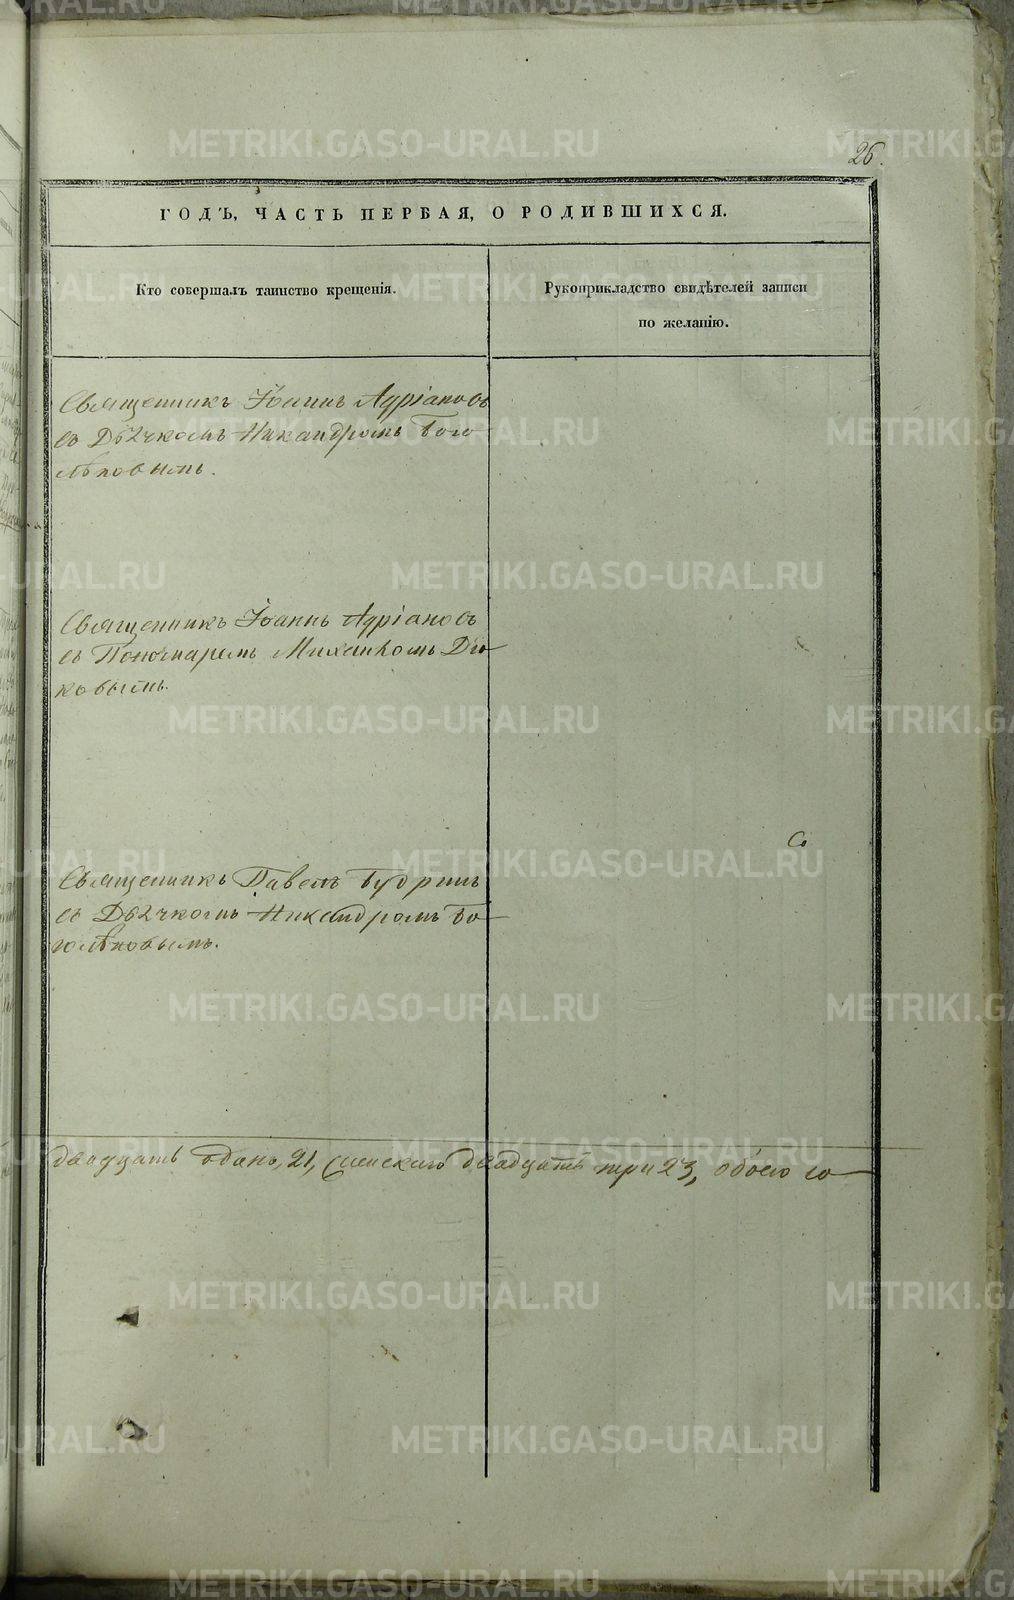 26.
ГОДЪ, ЧАСТЬ ПЕРВАЯ, О РОДИВШИХСЯ.
Кто совершалъ таинство крещенія.
Рукоприкладство свидѣтелей записи
по желанію.
Священникъ Іоаннъ Адріановъ
съ Дьячкомъ Никандромъ Бого
лѣповымъ.
Священникъ Іоаннъ Адріановъ
съ Пономаремъ Михаиломъ Дья
ковымъ.
Священникъ Павелъ Будринъ
съ Дьячкомъ Никандромъ Бо
голѣповымъ.
Двадцать одинъ, 21, женскаго двадцать три 23, обоего
METRIKI.GASO-URAL.RU